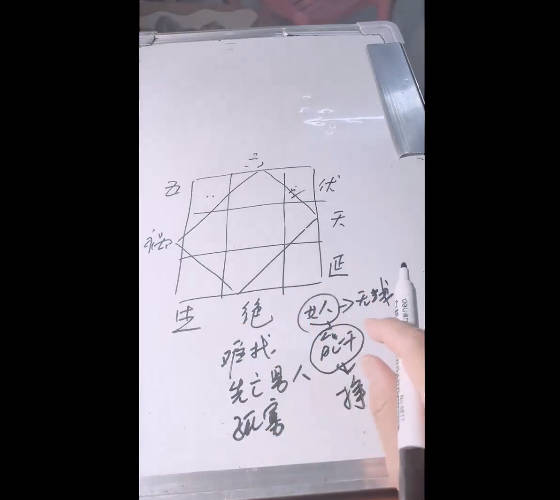 六
五 伏
祸 天
生 绝 延
女人 → 无钱
能干
挣
难找
先亡男人
孤寡